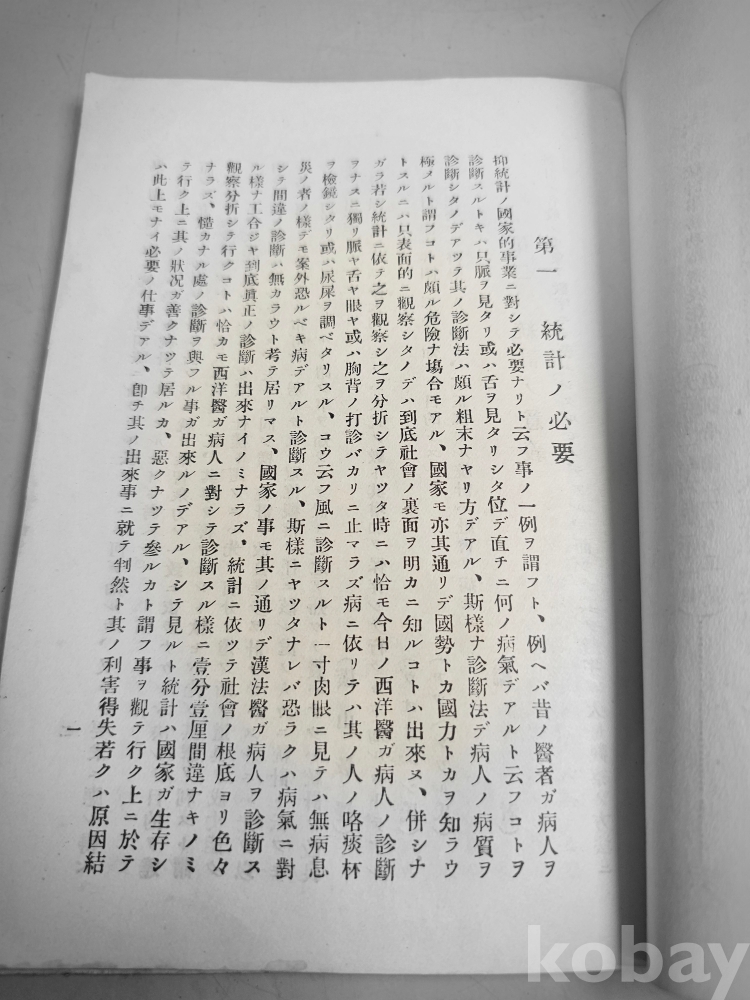 第一　統計ノ必要
抑統計ノ國家的事業ニ對シテ必要ナリト云フ事ノ一例ヲ謂フト、例ヘバ昔ノ醫者ガ病人ヲ
診斷スルトキハ只脈ヲ見タリ或ハ舌ヲ見タリシタ位デ直チニ何ノ病氣デアルト云フコトヲ
診斷シタノデアツテ其ノ診斷法ハ頗ル粗末ナヤリ方デアル、斯樣ナ診斷法デ病人ノ病質ヲ
極メルト謂フコトハ頗ル危險ナ塲合モアル、國家モ亦其通リデ國勢トカ國力トカヲ知ラウ
トスルニハ只表面的ニ觀察シタノデハ到底社會ノ裏面ヲ明カニ知ルコトハ出來ヌ、併シナ
ガラ若シ統計ニ依テ之ヲ觀察シ之ヲ分折シテヤツタ時ニハ恰モ今日ノ西洋醫ガ病人ノ診斷
ヲナスニ獨リ脈ヤ舌ヤ眼ヤ或ハ胸背ノ打診バカリニ止マラズ病ニ依リテハ其ノ人ノ咯痰杯
ヲ檢鏡シタリ或ハ尿屎ヲ調ベタリスル、コウ云フ風ニ診斷スルト一寸肉眼ニ見テハ無病息
災ノ者ノ樣デモ案外恐ルベキ病デアルト診斷スル、斯樣ニヤツタナレバ恐ラクハ病氣ニ對
シテ間違ノ診斷ハ無カラウト考テ居リマス、國家ノ事モ其ノ通リデ漢法醫ガ病人ヲ診斷ス
ル樣ナ工合ジヤ到底眞正ノ診斷ハ出來ナイノミナラズ、統計ニ依ツテ社會ノ根底ヨリ色々
觀察分折シテ行クコトハ恰カモ西洋醫ガ病人ニ對シテ診斷スル樣ニ壹分壹厘間違ナキノミ
ナラズ、慥カナル處ノ診斷ヲ與フル事ガ出來ルノデアル、シテ見ルト統計ハ國家ガ生存シ
テ行ク上ニ其ノ狀况ガ善クナツテ居ルカ、惡クナツテ參ルカト謂フ事ヲ觀テ行ク上ニ於テ
ハ此上モナイ必要ノ仕事デアル、卽チ其ノ出來事ニ就テ判然ト其ノ利害得失若クハ原因結
一
kobay